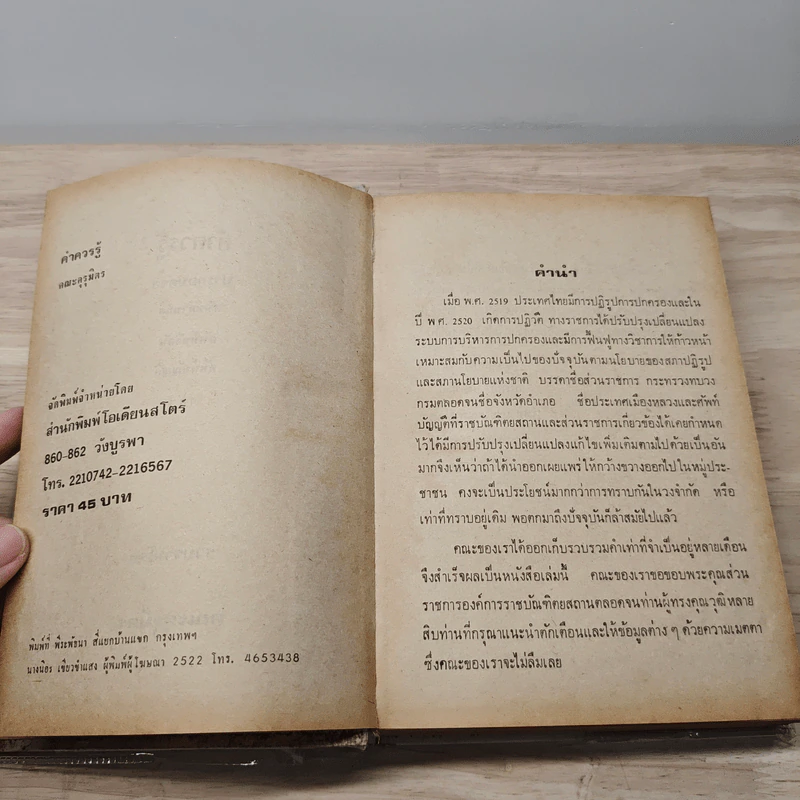 คำควรรู้
คณะดุรุมิตร
จัดพิมพ์จำหน่ายโดย
สำนักพิมพ์โอเดียนสโตร์
860-862 วังบูรพา
โทร. 2210742-2216567
ราคา 45 บาท
พิมพ์ที่ พีระพัธนา สี่แยกบ้านแขก กรุงเทพฯ
นางน้อร เขียวขำแสง ผู้พิมพ์ผู้โฆษณา 2522 โทร. 4653438
คำนำ
เมื่อ พ.ศ. 2519 ประเทศไทยมีการปฏิรูปการปกครองและใน
ปี พ ศ. 2520 เกิดการปฏิวัติ ทางราชการได้ปรับปรุงเปลี่ยนแปลง
ระบบการบริหารการปกครองและมีการฟื้นฟูทางวิชาการให้ก้าวหน้า
เหมาะสมกับความเป็นไปของปัจจุบันตามนโยบายของสภาปฏิรูป
และสภานโยบายแห่งชาติ บรรดาชื่อส่วนราชการ กระทรวงทบวง
กรมตลอดจนชื่อจังหวัดอำเภอ ชื่อประเทศเมืองหลวงและศัพท์
บัญญัติที่ราชบัณฑิตยสถานและส่วนราชการเกี่ยวข้องได้เคยกำหนด
ไว้ได้มีการปรับปรุงเปลี่ยนแปลงแก้ไขเพิ่มเติมตามไปด้วยเป็นอัน
มากจึงเห็นว่าถ้าได้นำออกเผยแพร่ให้กว้างขวางออกไปในหมู่ประ-
ชาชน คงจะเป็นประโยชน์มากกว่าการทราบกันในวงจำกัด หรือ
เท่าที่ทราบอยู่เดิม พอตกมาถึงปัจจุบันก็ล้าสมัยไปแล้ว
คณะของเราได้ออกเก็บรวบรวมคำเท่าที่จำเป็นอยู่หลายเดือน
จึงสำเร็จผลเป็นหนังสือเล่มนี้ คณะของเราขอขอบพระคุณส่วน
ราชการองค์การราชบัณฑิตยสถานตลอดจนท่านผู้ทรงคุณวุฒิหลาย
สิบท่านที่กรุณาแนะนำตักเตือนและให้ข้อมูลต่าง ๆ ด้วยความเมตตา
ซึ่งคณะของเราจะไม่ลืมเลย